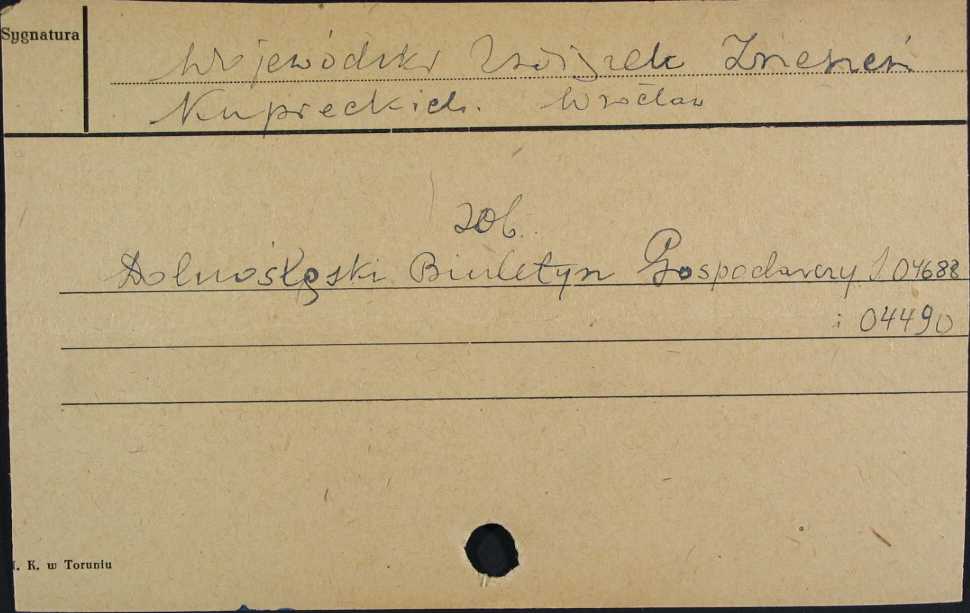 Sygnatura
Wojewódzki Związek Zrzeszeń
Kupieckich. Wrocław
zob.
Dolnośląski Biuletyn Gospodarczy 04688
i 04490
K. w Toruniu